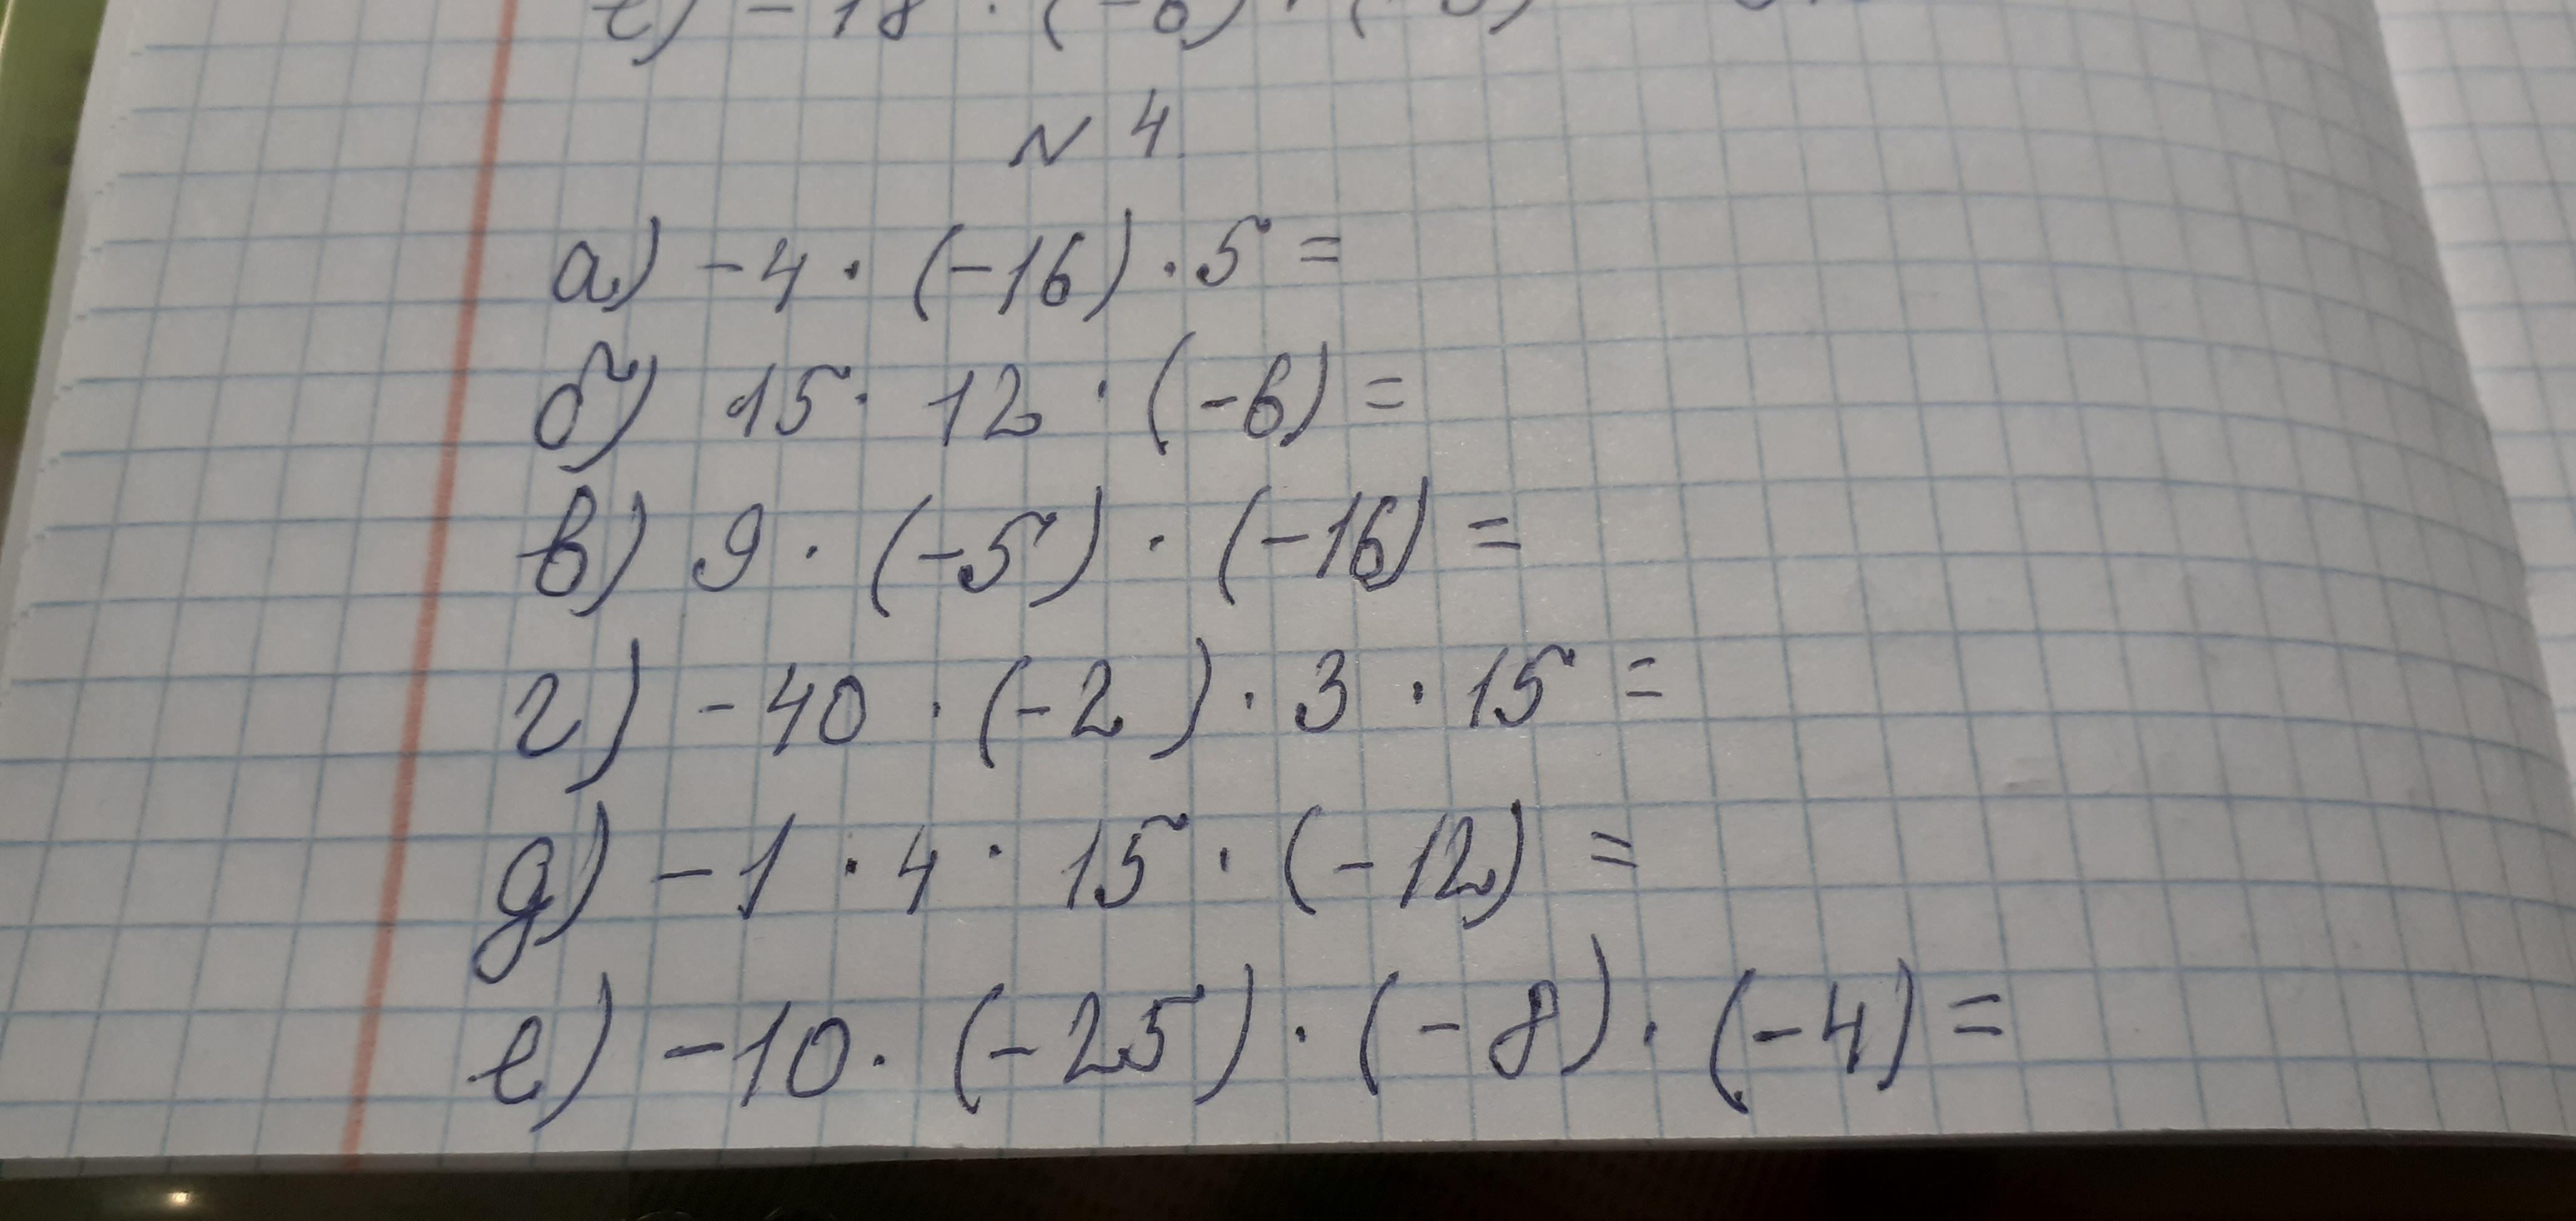 е) -18 · (-6) ·
N 4
а) -4 · (-16) · 5 =
б) 15 · 12 · (-6) =
в) 9 · (-5) · (-16) =
г) -40 · (-2) · 3 · 15 =
д) -1 · 4 · 15 · (-12) =
е) -10 · (-25) · (-8) · (-4) =